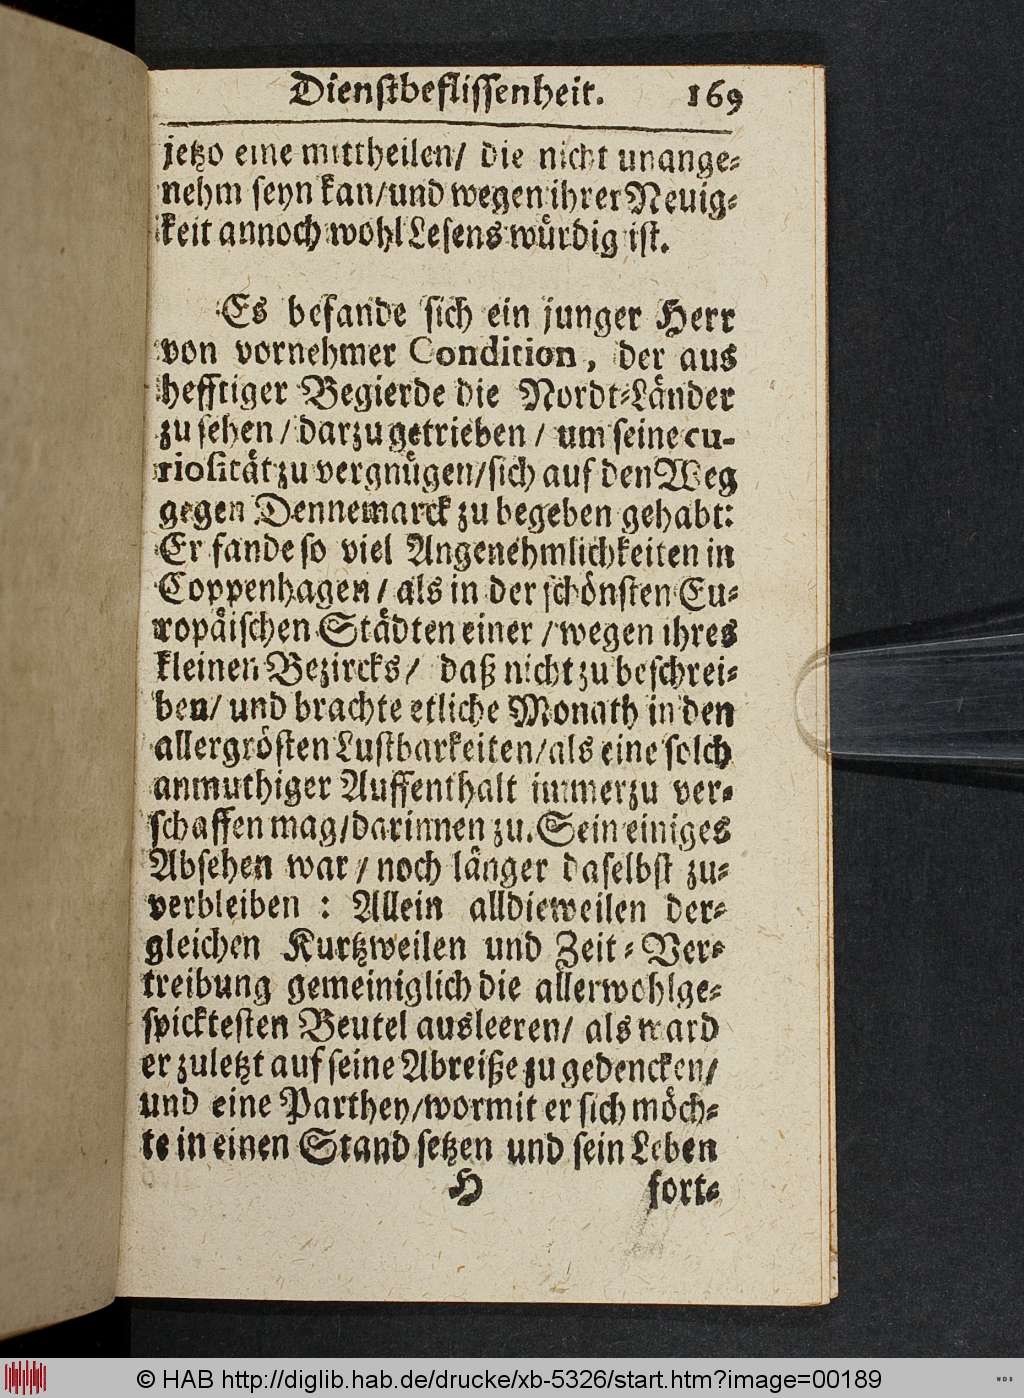 Dienstbeflissenheit. 169
jetzo eine mittheilen/ die nicht unange-
nehm seyn kan/und wegen ihrer Neuig-
keit annoch wohl Lesens würdig ist.
Es befande sich ein junger Herr
von vornehmer Condition, der aus
hefftiger Begierde die Nordt-Länder
zu sehen/ darzu getrieben/ um seine cu-
riosität zu vergnügen/sich auf den Weg
gegen Dennemarck zu begeben gehabt:
Er fande so viel Angenehmlichkeiten in
Coppenhagen/ als in der schönsten Eu-
ropäischen Städten einer/wegen ihres
kleinen Bezircks/ daß nicht zu beschrei-
ben/ und brachte etliche Monath in den
allergrösten Lustbarkeiten/als eine solch
anmuthiger Auffenthalt immerzu ver-
schaffen mag/darinnen zu. Sein einiges
Absehen war/ noch länger daselbst zu-
verbleiben: Allein alldieweilen der-
gleichen Kurtzweilen und Zeit-Ver-
treibung gemeiniglich die allerwohlge-
spicktesten Beutel ausleeren/ als ward
er zuletzt auf seine Abreiße zu gedencken/
und eine Parthey/wormit er sich möch-
te in einen Stand setzen und sein Leben
H fort-
© HAB http://diglib.hab.de/drucke/xb-5326/start.htm?image=00189